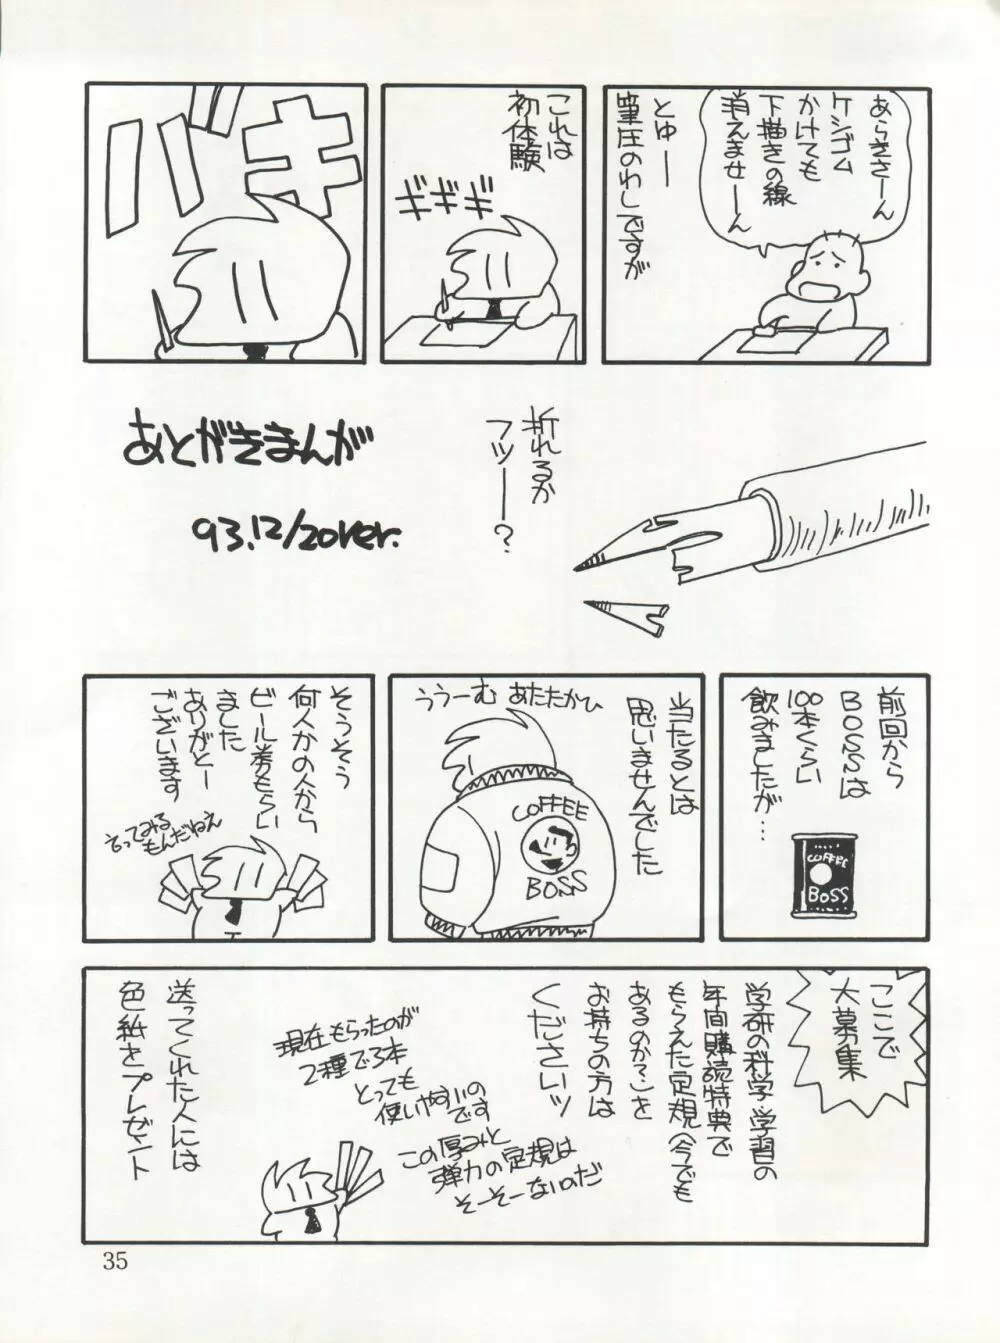 あらささーん
ケシゴム
かけても
下描きの線
消えませーん
とゆー
筆圧のわしですが
これは
初体験
ギギギ
バキ
折れるか
フツー？
あとがきまんが
93.12/20ver.
前回から
BOSSは
100本くらい
飲みましたが…
COFFEE
BOSS
当たるとは
思いませんでした
ううーむ あたたかひ
COFFEE
BOSS
そうそう
何人かの人から
ビール券もらい
ました
ありがとー
ございます
言ってみる
もんだねえ
ここで
大募集
学研の科学 学習の
年間購読特典で
もらえた定規(今でも
あるのか？)を
お持ちの方は
くださいッ
現在もらったのが
2種で3本
とっても
使いやすいの
です
この厚みと
弾力の定規は
そーそーないのだ
送ってくれた人には
色紙をプレゼント
35